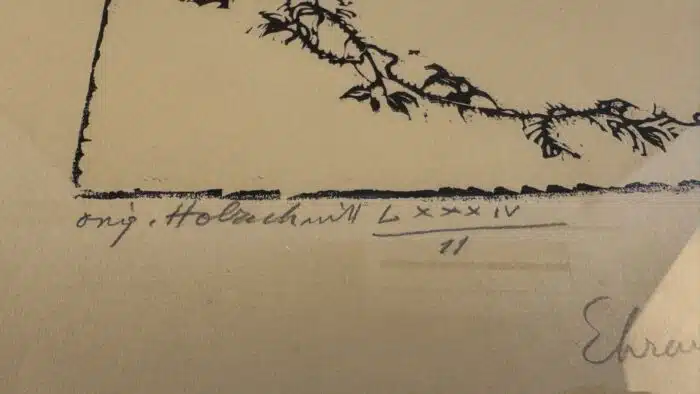 orig. Holzschnitt LXXXIV
11
Ehra